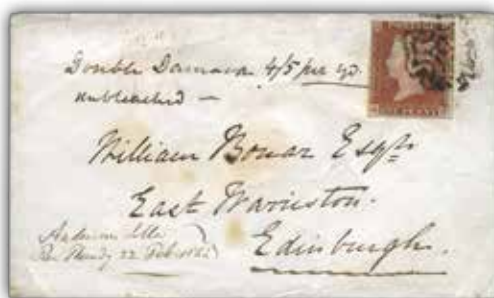 Double Damask 4/5 per yd.
unbleached —
William Bonar Esqr.
East Warriston.
Edinburgh.
22 Feb